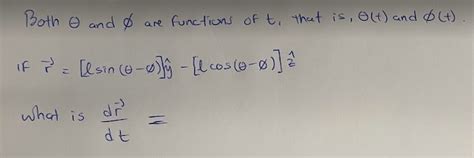 Both θ and ϕ are functions of t, that is, θ(t) and ϕ(t).
IF r⃗ = [ℓsin(θ-ϕ)]ŷ - [ℓcos(θ-ϕ)]ẑ
what is dr⃗/dt =